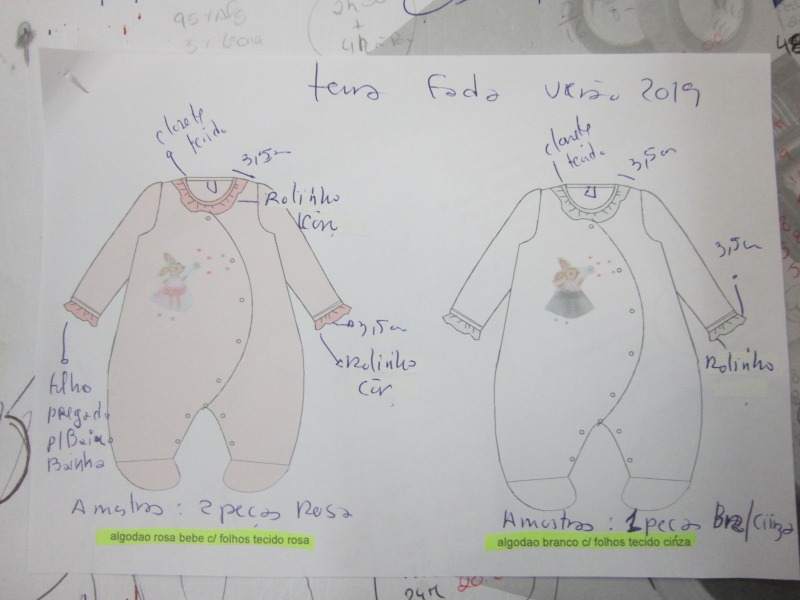 tema Fada Verão 2019
tecido
3,5cm
Rolinho
Cin,
3,5cm
Rolinho
Cin,
folho
pregado
p/ Bain
Bainha
Amostras : 2 peças Rosa
algodao rosa bebe c/ folhos tecido rosa
tecido
3,5cm
3,5cm
Rolinho
Amostras : 1 peças Bra/cinza
algodao branco c/ folhos tecido cinza